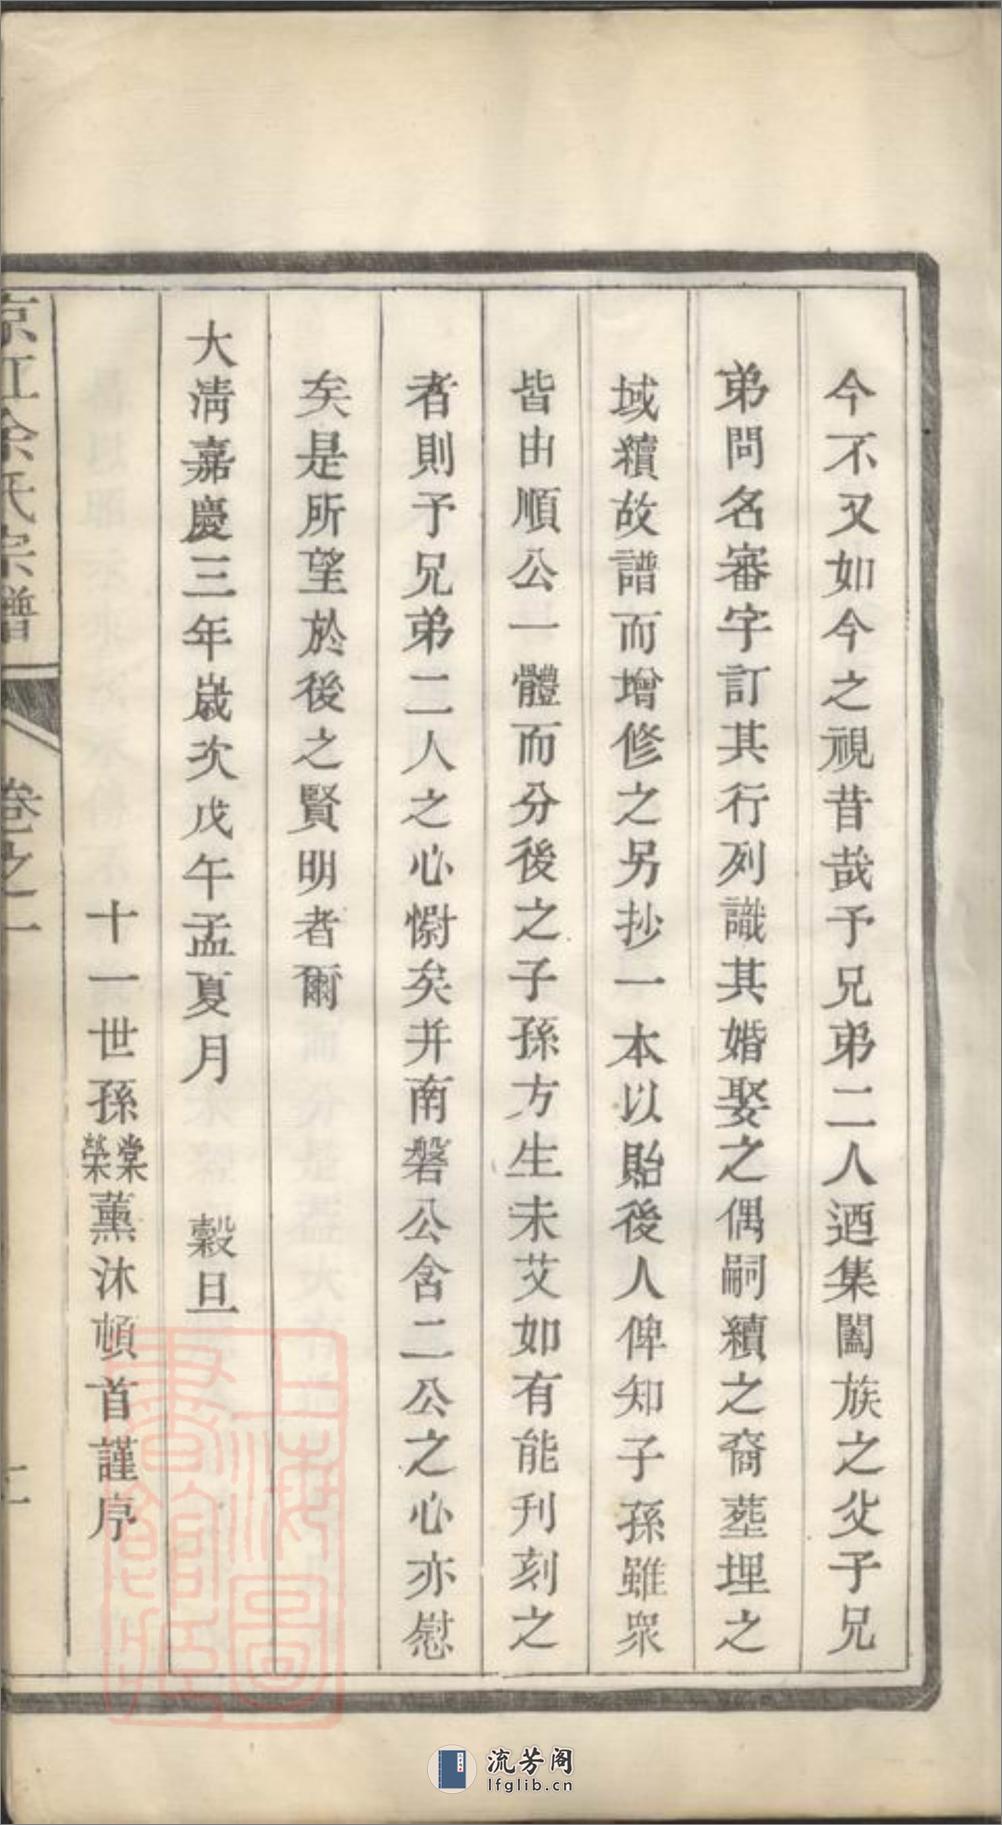 今不又如今之視昔哉予兄弟二人迺集闔族之父子兄
弟問名審字訂其行列識其婚娶之偶嗣續之裔塟埋之
域續故譜而增修之另抄一本以貽後人俾知子孫雖衆
皆由順公一體而分後之子孫方生未艾如有能刊刻之
者則予兄弟二人之心慰矣并南磐公含二公之心亦慰
矣是所望於後之賢明者爾
大淸嘉慶三年歲次戊午孟夏月 穀旦
十一世孫棠榮薰沐頓首謹序
京江余氏宗譜 卷之一
上海圖書館藏
流芳阁
lfglib.cn